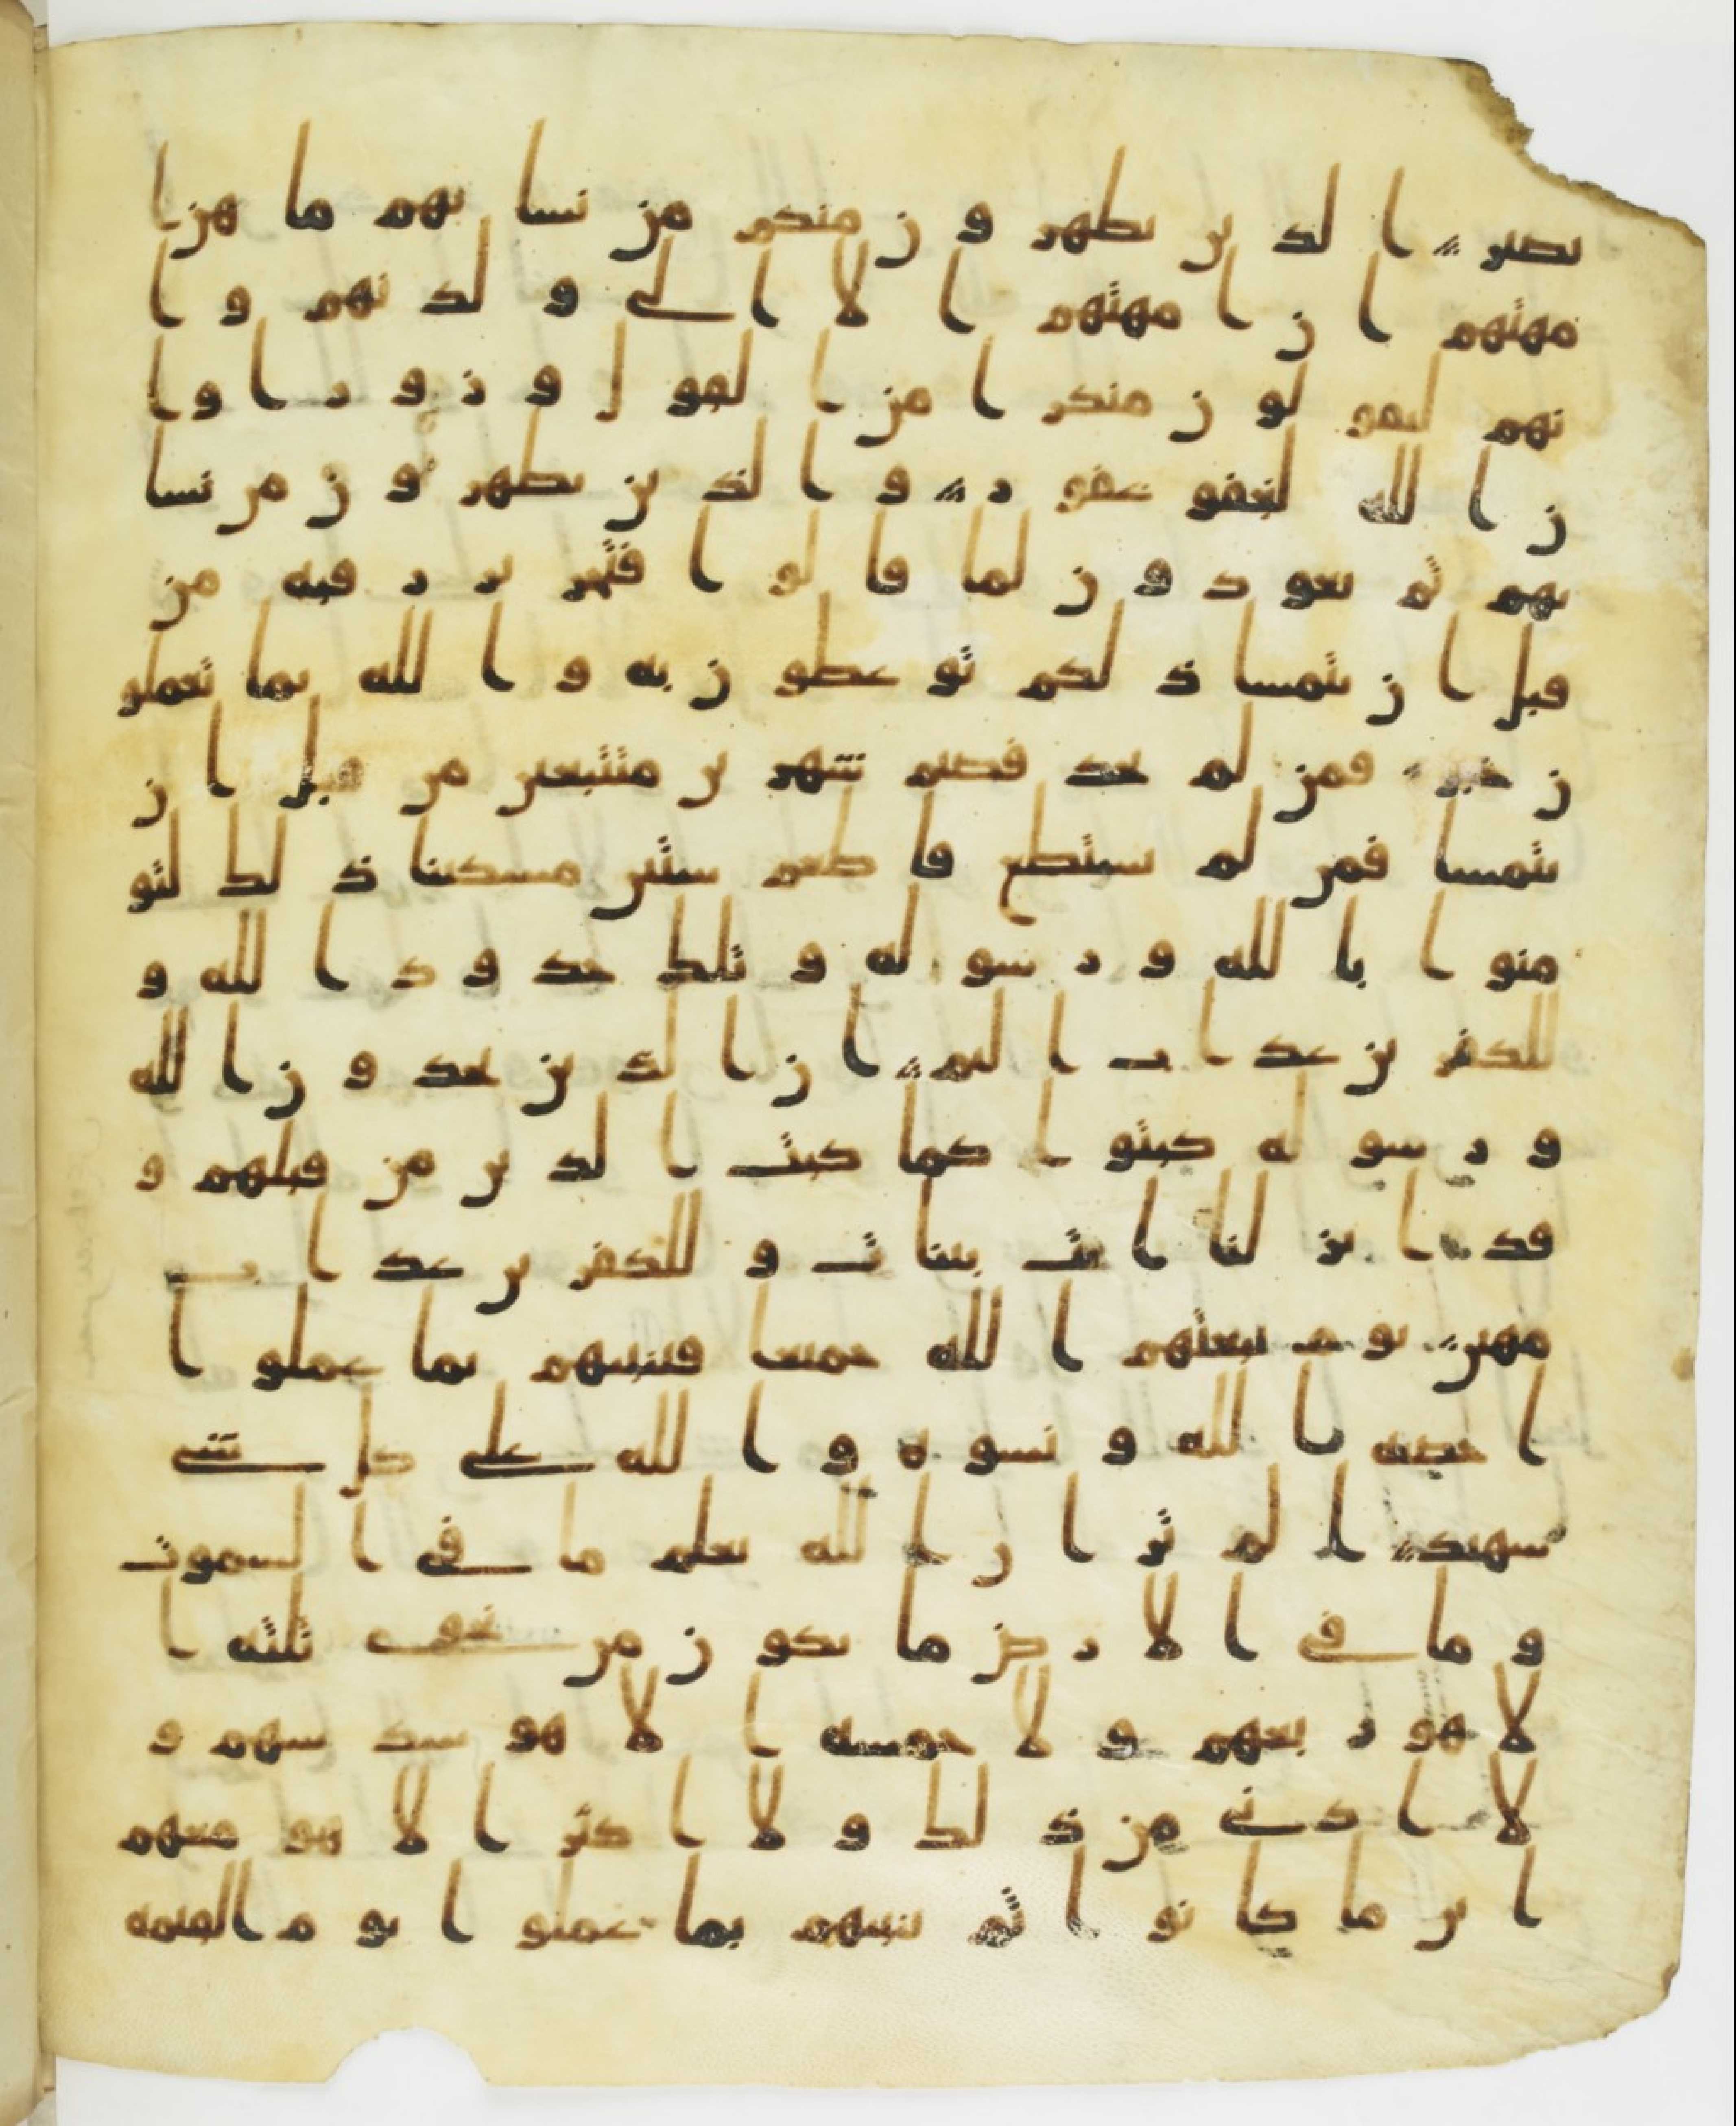 بصير الذين يظهرون منكم من نسائهم ما هن ا
مهتهم ان امهتهم الا الي ولدنهم و ا
نهم ليقولون منكرا من القول وزورا وا
ن الله لعفو غفور والذين يظهرون من نسا
ئهم ثم يعودون لما قالوا فتحرير رقبه من
قبل ان يتمسا ذلكم توعظون به والله بما تعملو
ن خبير فمن لم يجد فصيم شهرين متتبعين من قبل ان
يتمسا فمن لم يستطع فاطعم ستين مسكينا ذلك لتو
منوا بالله ورسوله وتلك حدود الله و
للكفرين عذاب اليم ان الذين يحدون الله
ورسوله كبتوا كما كبت الذين من قبلهم و
قد انزلنا ايت بينات وللكفرين عذاب
مهين يوم يبعثهم الله جميعا فينبيهم بما عملوا
احصيه الله ونسوه والله على كل شي
شهيد الم تر ان الله يعلم ما في السموت
وما في الارض ما يكون من نجوى ثلثه ا
لا هو ربعهم ولا خمسه الا هو سدسهم و
لا ادنى من ذلك ولا اكثر الا هو معهم
اين ما كانوا ثم ينبيهم بما عملوا يوم القيمه